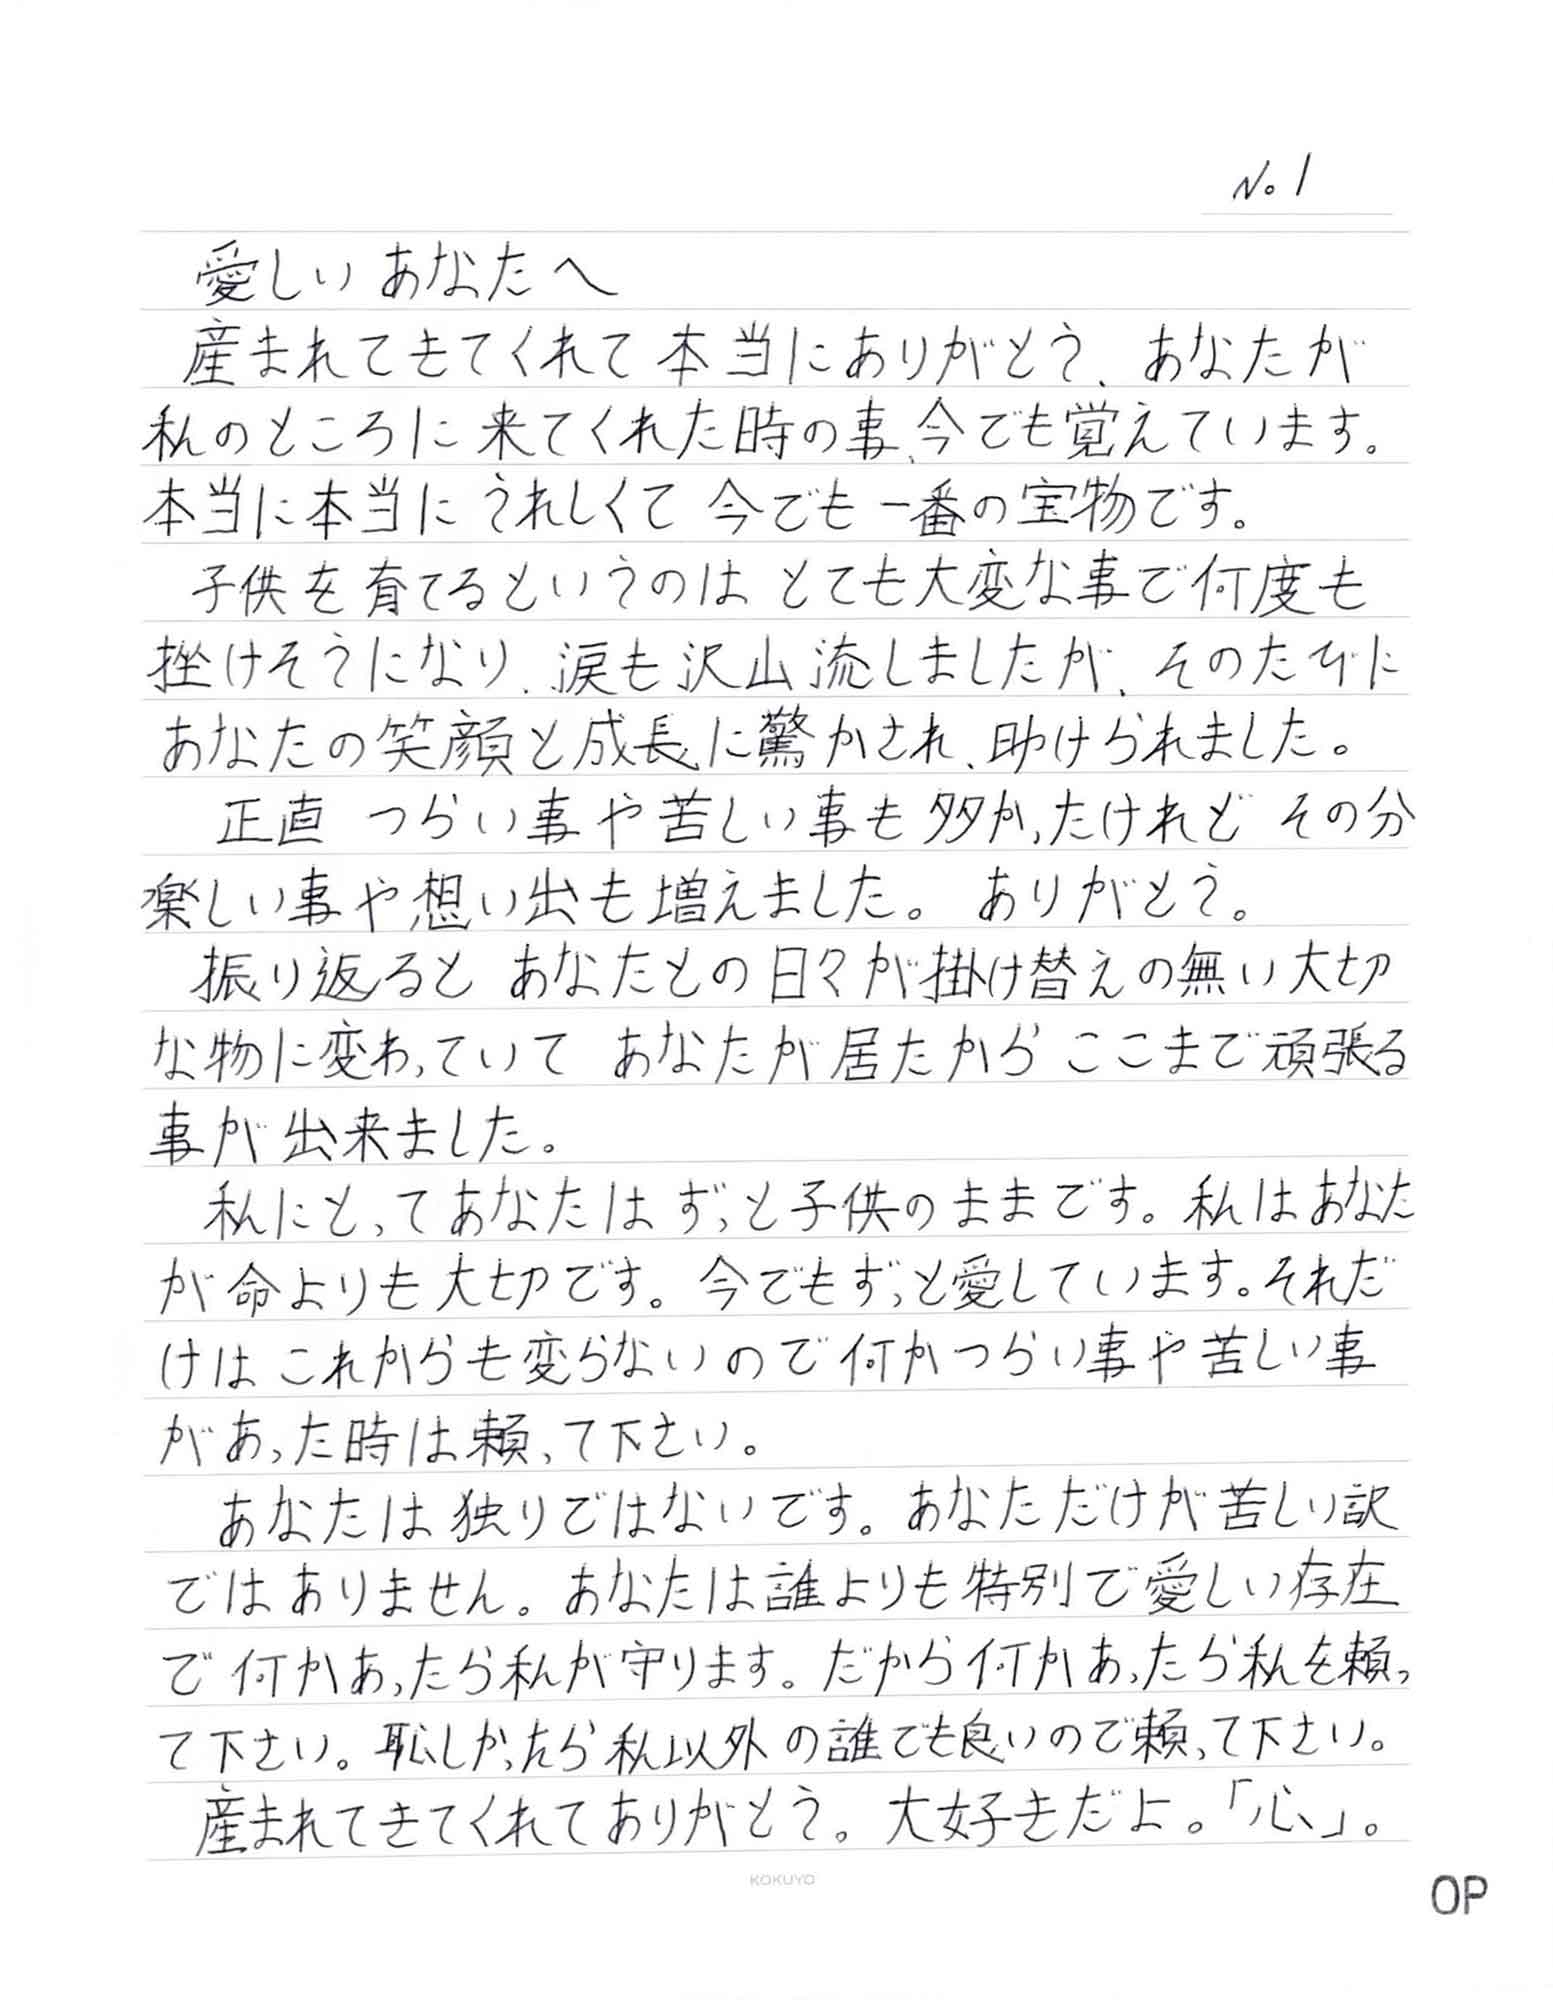 No.1
愛しいあなたへ
産まれてきてくれて本当にありがとう、あなたが
私のところに来てくれた時の事、今でも覚えています。
本当に本当にうれしくて今でも一番の宝物です。
子供を育てるというのはとても大変な事で何度も
挫けそうになり、涙も沢山流しましたが、そのたびに
あなたの笑顔と成長に驚かされ、助けられました。
正直 つらい事や苦しい事も多かったけれど その分
楽しい事や想い出も増えました。ありがとう。
振り返ると あなたとの日々が掛け替えの無い大切
な物に変わっていて あなたが居たから ここまで頑張る
事が出来ました。
私にとってあなたはずっと子供のままです。私はあなた
が命よりも大切です。今でもずっと愛しています。それだ
けはこれからも変らないので何かつらい事や苦しい事
があった時は頼って下さい。
あなたは独りではないです。あなただけが苦しい訳
ではありません。あなたは誰よりも特別で愛しい存在
で何かあったら私が守ります。だから何かあったら私を頼っ
て下さい。恥しかったら私以外の誰でも良いので頼って下さい。
産まれてきてくれてありがとう。大好きだよ。「心」。
KOKUYO
OP